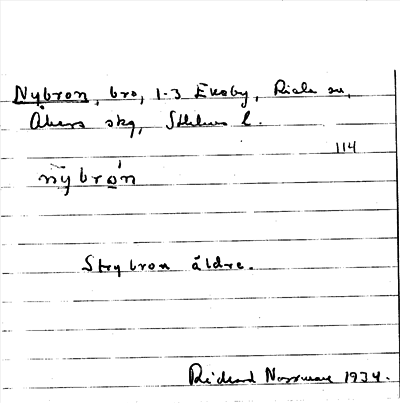 Nybron, bro, 1-3 Ekeby, Riala sn,
Åkers skg, Sthlms l.
114
nybron
Strybron äldre.
Richard 1934.